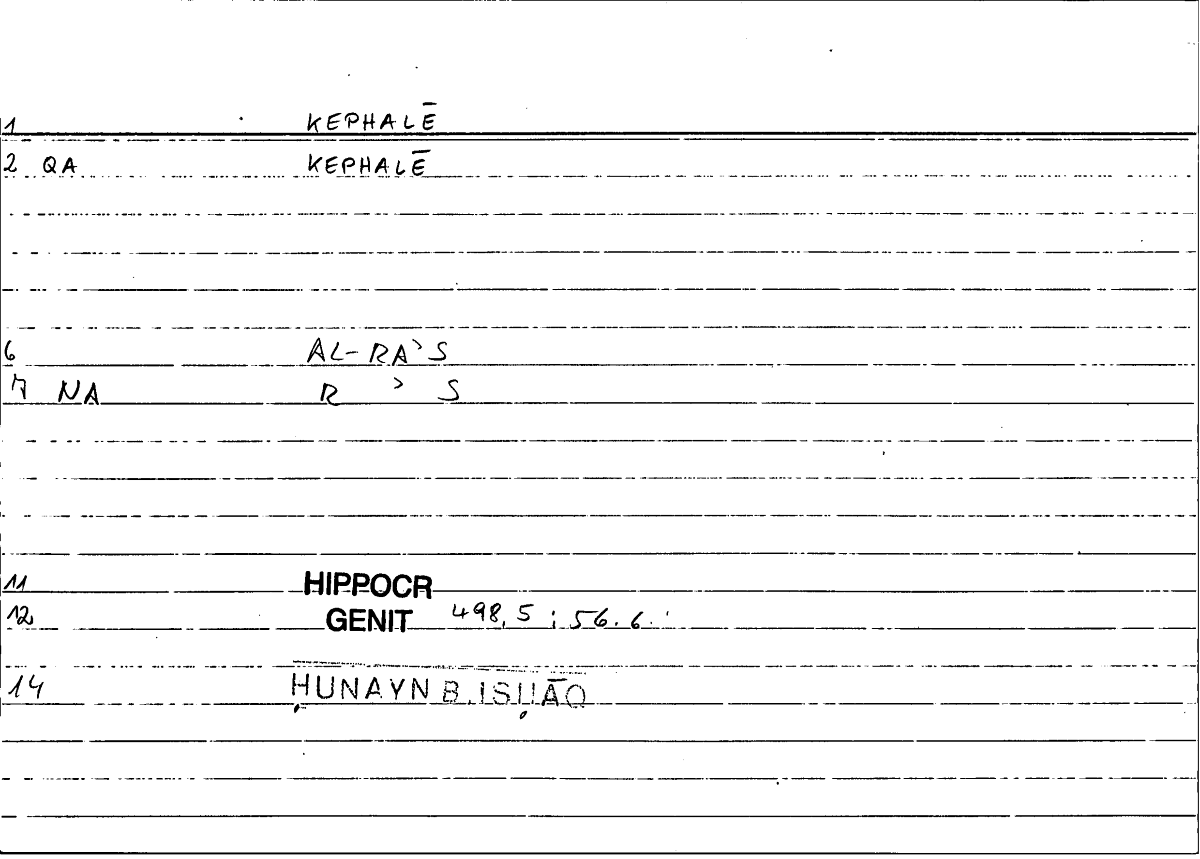 1 KEPHALĒ
2 QA KEPHALĒ
6 AL-RA˒S
7 NA R ˒ S
11 HIPPOCR
12 GENIT 498,5 ; 56.6.
14 ḤUNAYN B. ISḤĀQ